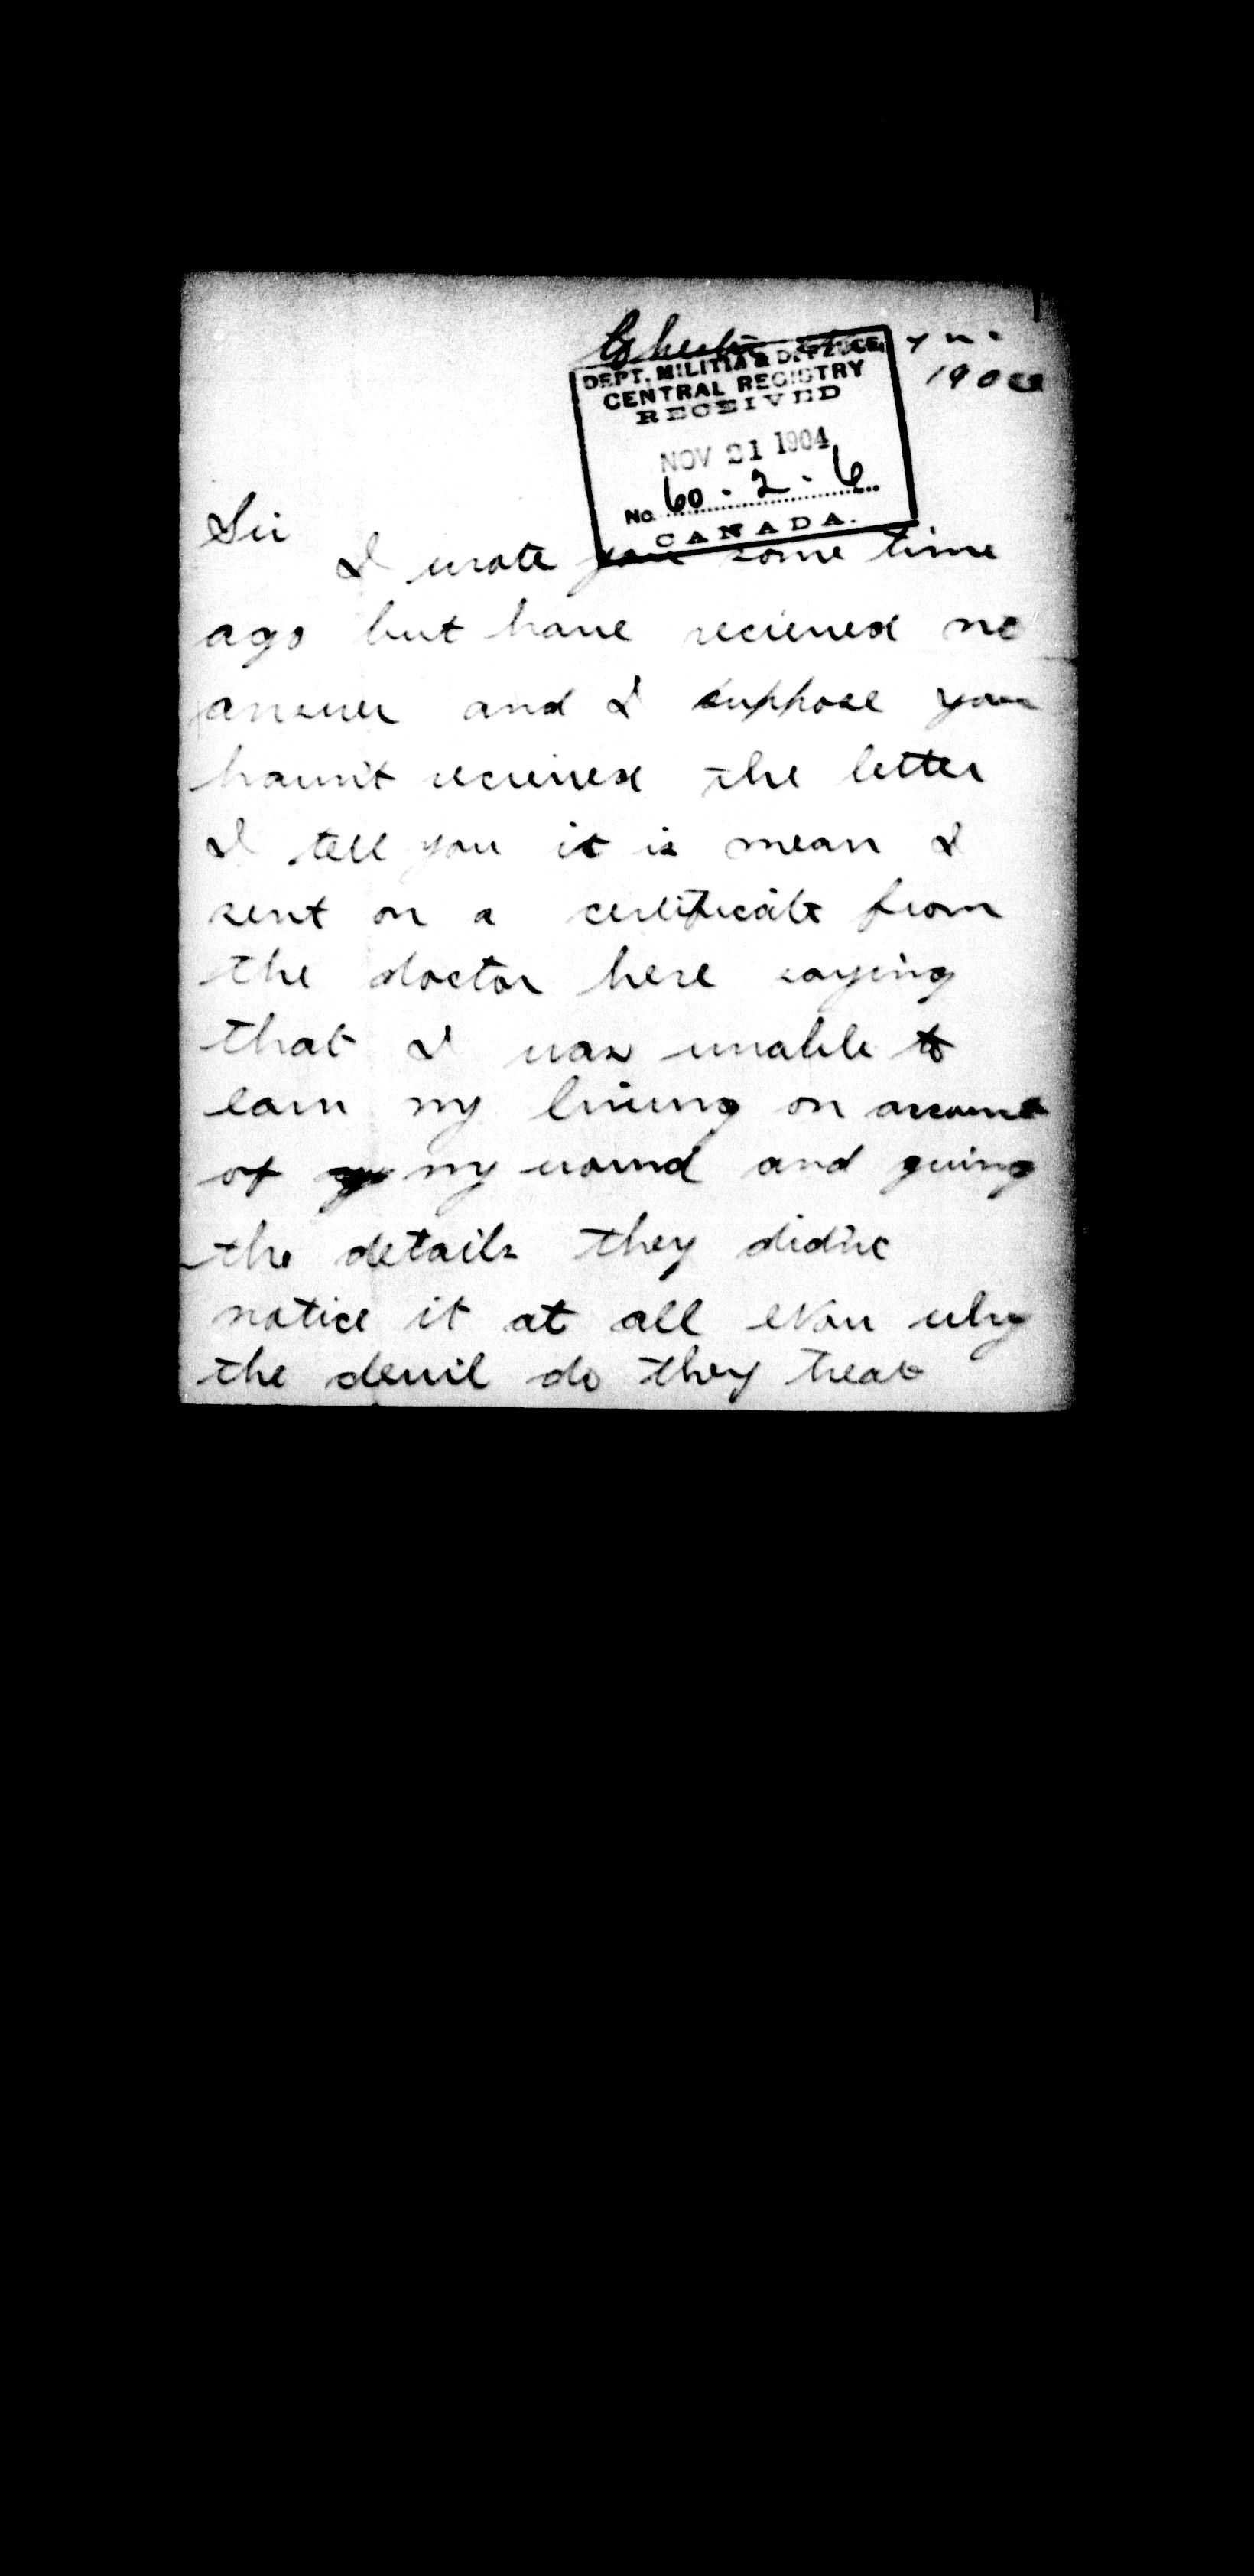 DEPT. MILITIA & DEFENCE,
CENTRAL REGISTRY
RECEIVED
NOV 21 1904
No. 60-2-6
CANADA.
Sir
I wrote you some time
ago but have recieved no
answer and I suppose you
havn't recieved the letter
I tell you it is mean I
sent on a certificate from
the doctor here saying
that I was unable to
earn my living on account
of my wound and giving
the details they didn't
notice it at all now why
the devil do they treat